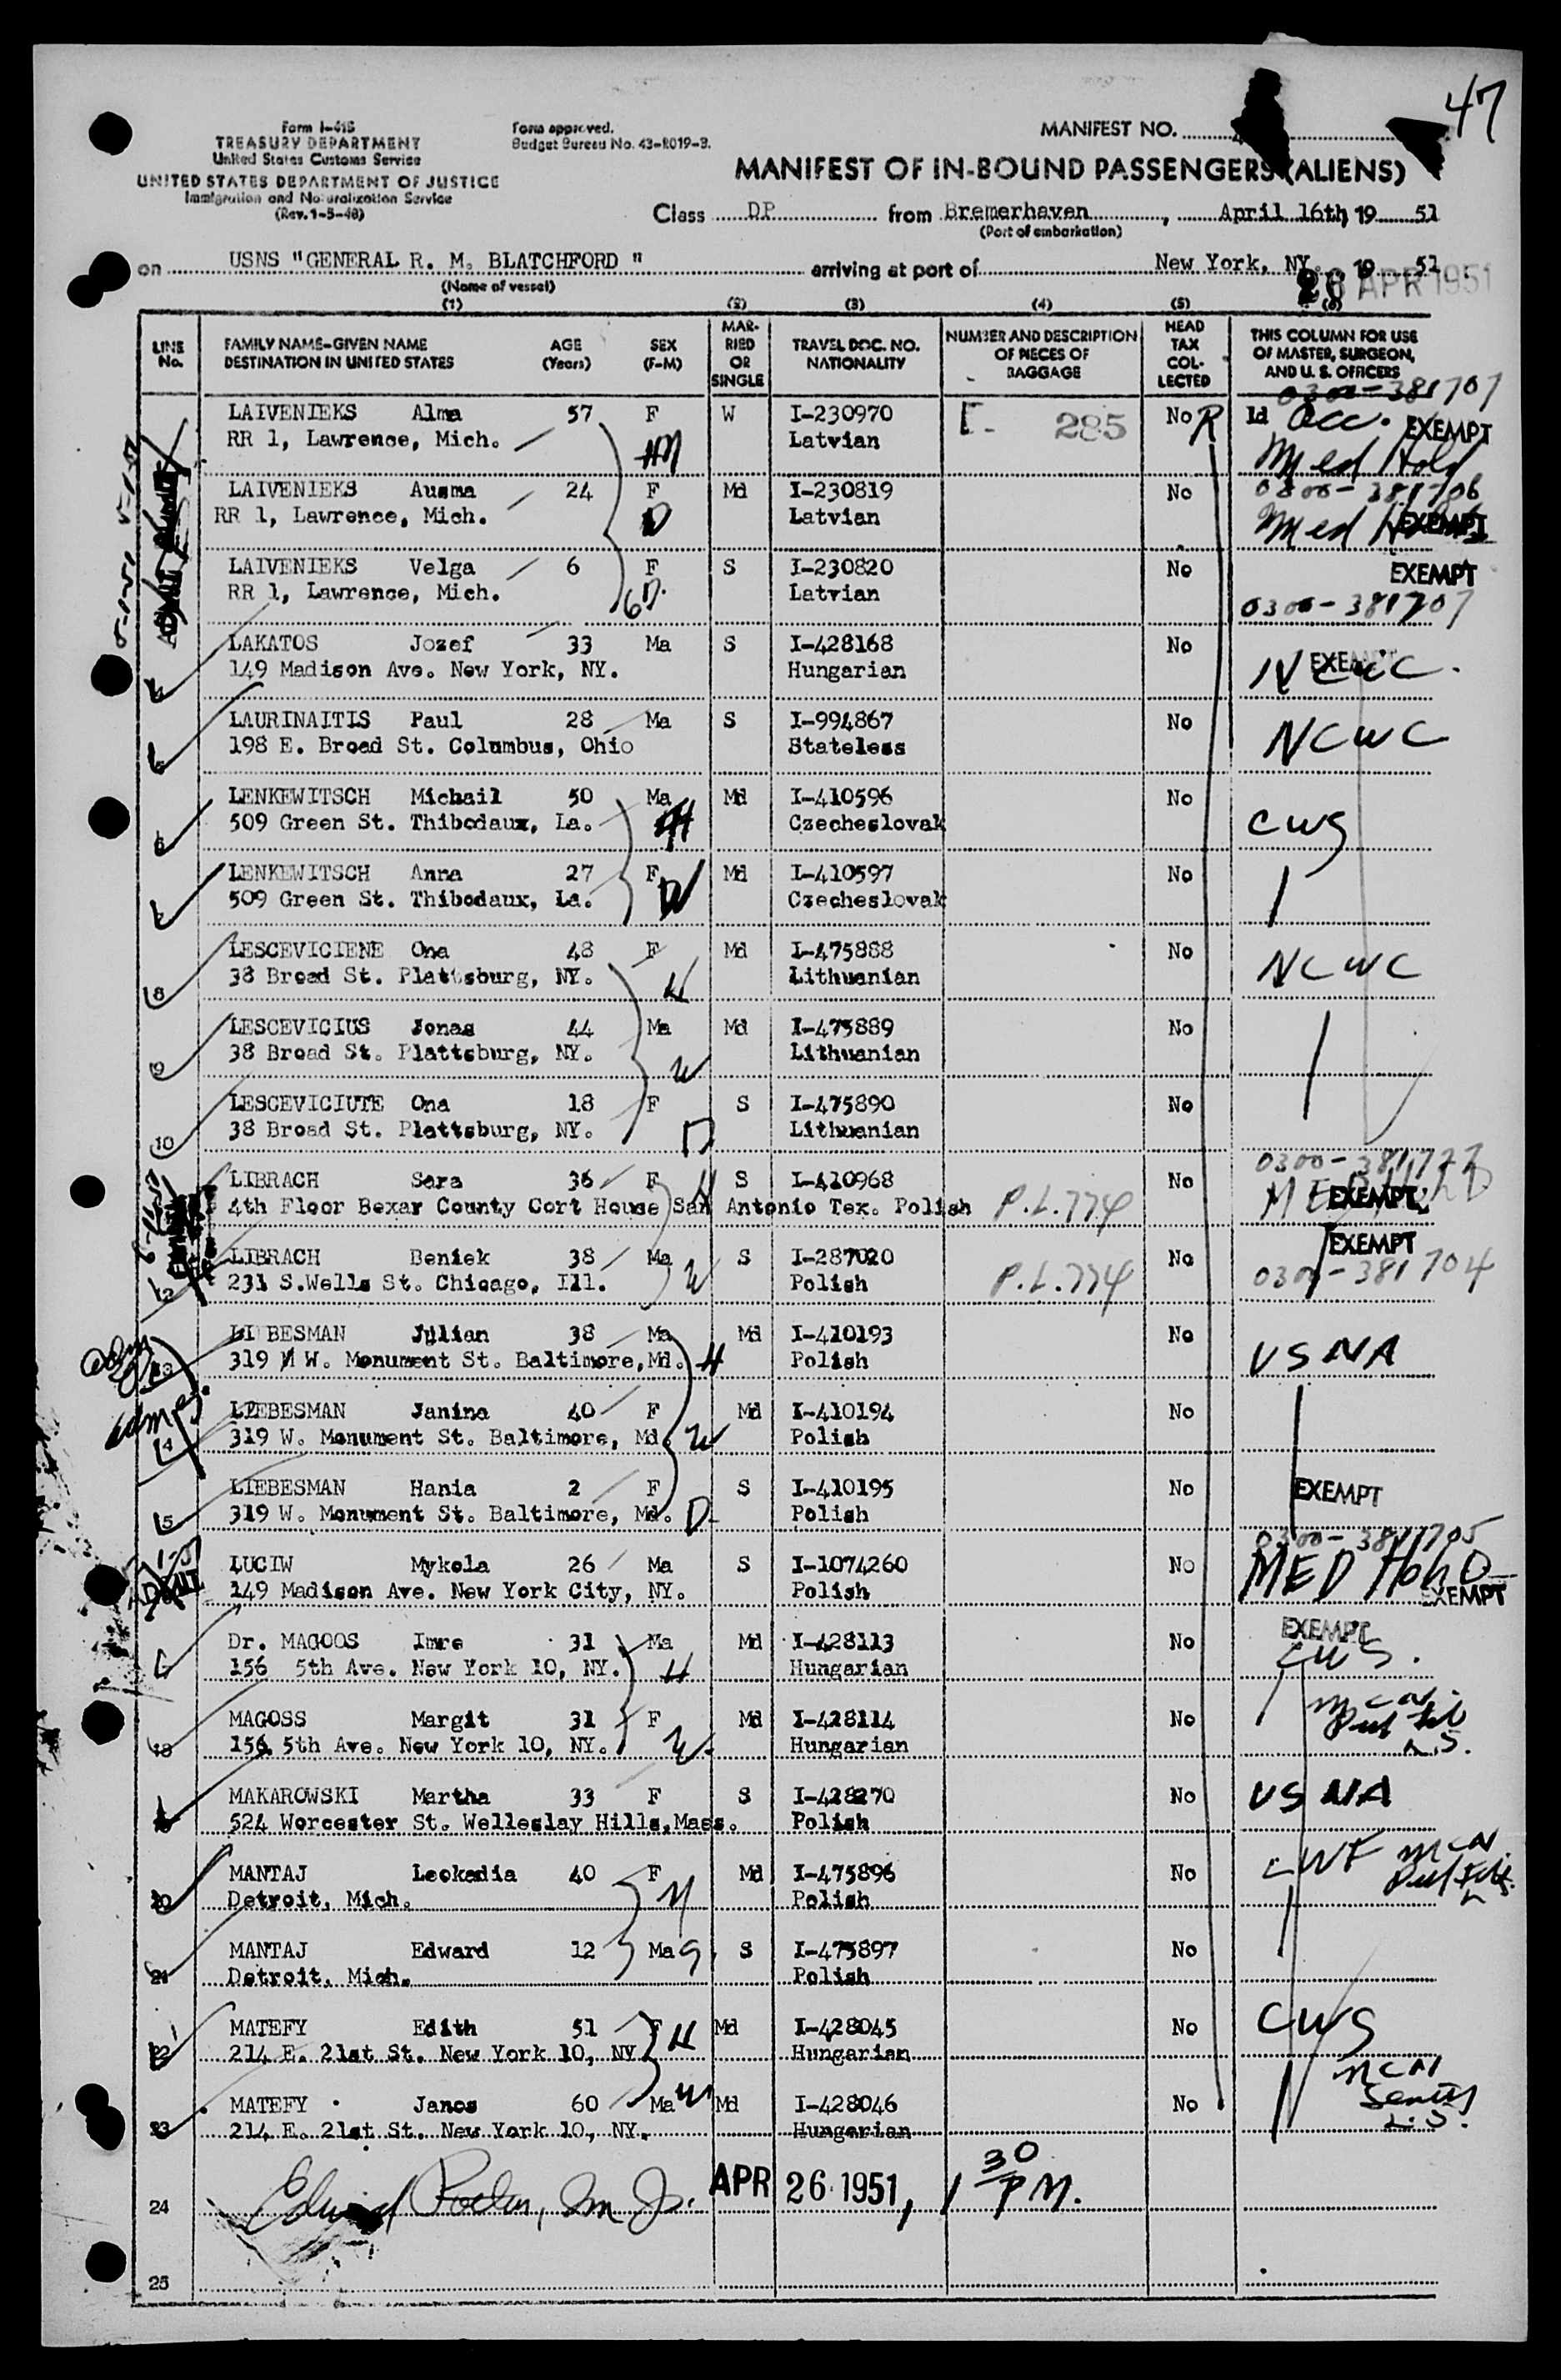 47
Form I-418
TREASURY DEPARTMENT
United States Customs Service
UNITED STATES DEPARTMENT OF JUSTICE
Immigration and Naturalization Service
(Rev. 1-5-48)
Form approved.
Budget Bureau No. 43-R019-3.
MANIFEST NO.
MANIFEST OF IN-BOUND PASSENGERS (ALIENS)
Class DP from Bremerhaven, April 16th, 19 51
(Port of embarkation)
on USNS "GENERAL R. M. BLATCHFORD " arriving at port of New York, NY. 19 51
(Name of vessel)
26 APR 1951
(1) (2) (3) (4) (5) (6)
LINE No. FAMILY NAME-GIVEN NAME DESTINATION IN UNITED STATES AGE (Years) SEX (F-M) MARRIED OR SINGLE TRAVEL DOC. NO. NATIONALITY NUMBER AND DESCRIPTION OF PIECES OF BAGGAGE HEAD TAX COLLECTED THIS COLUMN FOR USE OF MASTER, SURGEON, AND U. S. OFFICERS
0300-381707
LAIVENIEKS Alma 57 F W I-230970 285 No R Acc. EXEMPT
RR 1, Lawrence, Mich. Latvian Med Hold
LAIVENIEKS Ausma 24 F Md I-230819 No 0300-381706
RR 1, Lawrence, Mich. D Latvian Med Hold EXEMPT
LAIVENIEKS Velga 6 F S I-230820 No EXEMPT
RR 1, Lawrence, Mich. GD. Latvian 0300-381707
LAKATOS Jozef 33 Ma S I-428168 No EXEMPT
149 Madison Ave. New York, NY. Hungarian NCWC.
LAURINAITIS Paul 28 Ma S I-994867 No NCWC
198 E. Broad St. Columbus, Ohio Stateless
LENKEWITSCH Michail 50 Ma Md I-410596 No
509 Green St. Thibodaux, La. H Czecheslovak CWS
LENKEWITSCH Anna 27 F Md I-410597 No
509 Green St. Thibodaux, La. W Czecheslovak
LESCEVICIENE Ona 48 F Md I-475888 No NCWC
8 38 Broad St. Plattsburg, NY. H Lithuanian
LESCEVICIUS Jonas 44 Ma Md I-475889 No
9 38 Broad St. Plattsburg, NY. W Lithuanian
LESCEVICIUTE Ona 18 F S I-475890 No
10 38 Broad St. Plattsburg, NY. D Lithuanian
LIBRACH Sara 36 F H S I-410968 No
4th Floor Bexar County Cort House San Antonio Tex. Polish P.L.774 EXEMPT
LIBRACH Beniek 38 Ma S I-287020 No EXEMPT
231 S.Wells St. Chicago, Ill. W Polish P.L.774 0300-381704
LIEBESMAN Julian 38 Ma Md I-410193 No
319 W. Monument St. Baltimore, Md. H Polish USNA
LIEBESMAN Janina 40 F Md I-410194 No
319 W. Monument St. Baltimore, Md. W Polish
LIEBESMAN Hania 2 F S I-410195 No EXEMPT
319 W. Monument St. Baltimore, Md. D Polish
0300-381705
LUCIW Mykola 26 Ma S I-1074260 No MED Hold
149 Madison Ave. New York City, NY. Polish EXEMPT
Dr. MAGOOS Imre 31 Ma Md I-428113 No EXEMPT
156 5th Ave. New York 10, NY. H Hungarian CWS.
MAGOSS Margit 31 F Md I-428114 No
156 5th Ave. New York 10, NY. W. Hungarian
MAKAROWSKI Martha 33 F S I-428270 No USNA
524 Worcester St. Welleslay Hills, Mass. Polish
MANTAJ Leokadia 40 F Md I-475896 No CWF
20 Detroit, Mich. M Polish
MANTAJ Edward 12 Ma S I-475897 No
21 Detroit, Mich. Polish
MATEFY Edith 51 F H Md I-428045 No CWS
22 214 E. 21st St. New York 10, NY Hungarian
MATEFY Janos 60 Ma W Md I-428046 No
23 214 E. 21st St. New York 10, NY. Hungarian
24 APR 26 1951, 1 30 PM.
25